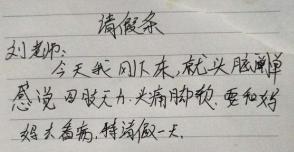 请假条
刘老师:
今天我刚下床,就头脑
感说四肢无力.头痛脚软.要和妈
妈去看病,特请假一天.